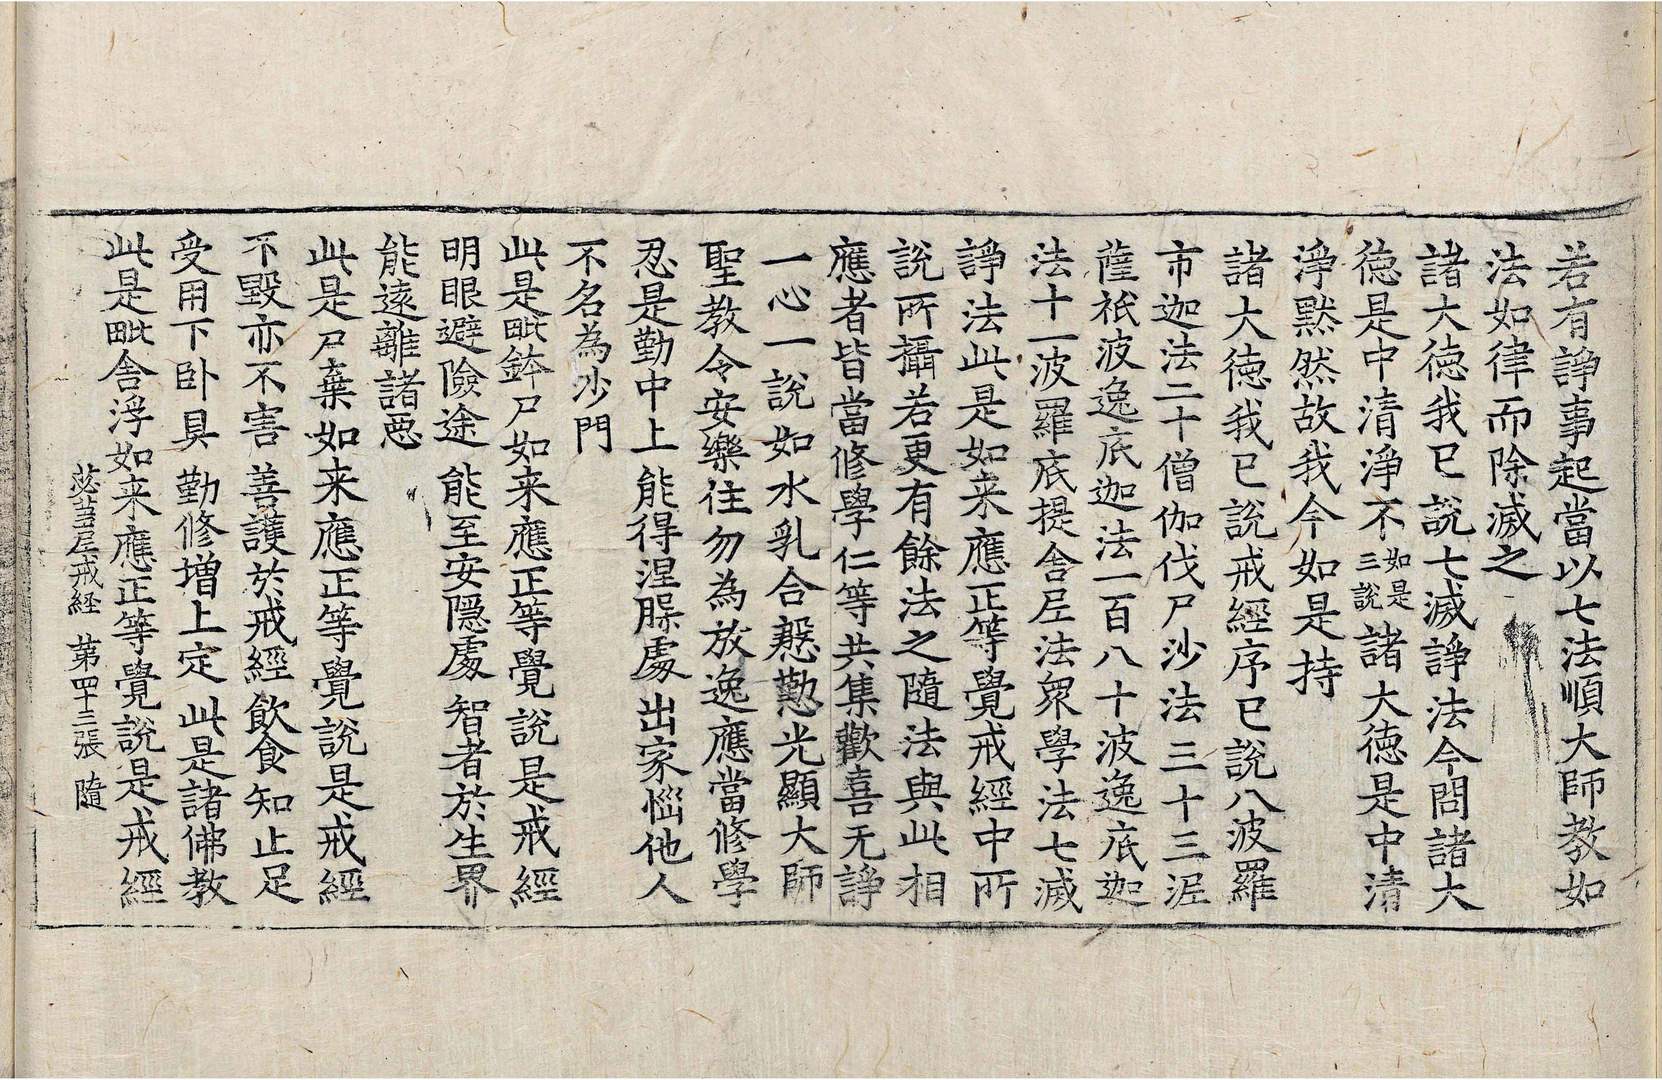 若有諍事起當以七法順大師教如
法如律而除滅之
諸大德我已說七滅諍法今問諸大
德是中清淨不如是三說諸大德是中清
淨默然故我今如是持
諸大德我已說戒經序已說八波羅
市迦法二十僧伽伐尸沙法三十三泥
薩祇波逸底迦法一百八十波逸底迦
法十一波羅底提舍尼法眾學法七滅
諍法此是如来應正等覺戒經中所
說所攝若更有餘法之隨法與此相
應者皆當修學仁等共集歡喜无諍
一心一說如水乳合慇懃光顯大師
聖教令安樂住勿為放逸應當修學
忍是勤中上 能得涅槃處 出家惱他人
不名為沙門
此是毗鉢尸如来應正等覺說是戒經
明眼避險途 能至安隱處 智者於生界
能遠離諸惡
此是尸棄如来應正等覺說是戒經
不毀亦不害 善護於戒經 飲食知止足
受用下卧具 勤修增上定 此是諸佛教
此是毗舍浮如来應正等覺說是戒經
苾芻尼戒経 第四十三張 隨